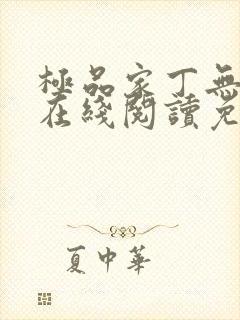 極品家丁無
在綫閱讀免
夏中華